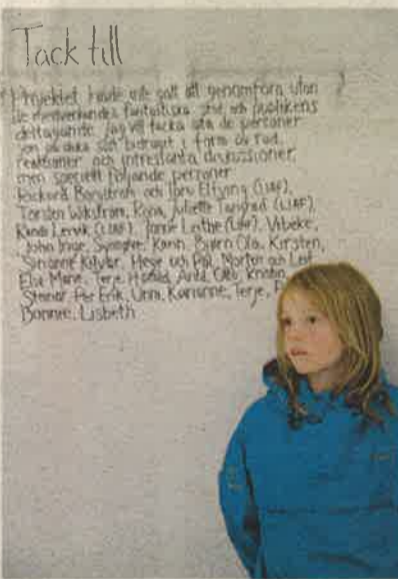 Tack till
Projektet hade inte gått att genomföra utan
de medverkandes fantastiska stöd och publikens
deltagande. Jag vill tacka alla de personer
som på olika sätt bidragit i form av råd,
reaktioner och intressanta diskussioner,
men speciellt följande personer
Rickard Borgström och (LIAF)
Torsten Wikström, Rona, Juliette (LIAF),
(LIAF), Vibeke,
John Inge, Karin, Bjørn Ola, Kirsten,
Hege och Pål, Morten och Leif
Else Marie, Terje, Arild, Otto, Kristin,
Steinar, Per Erik, Unni, Karianne, Terje,
Bonnie, Lisbeth